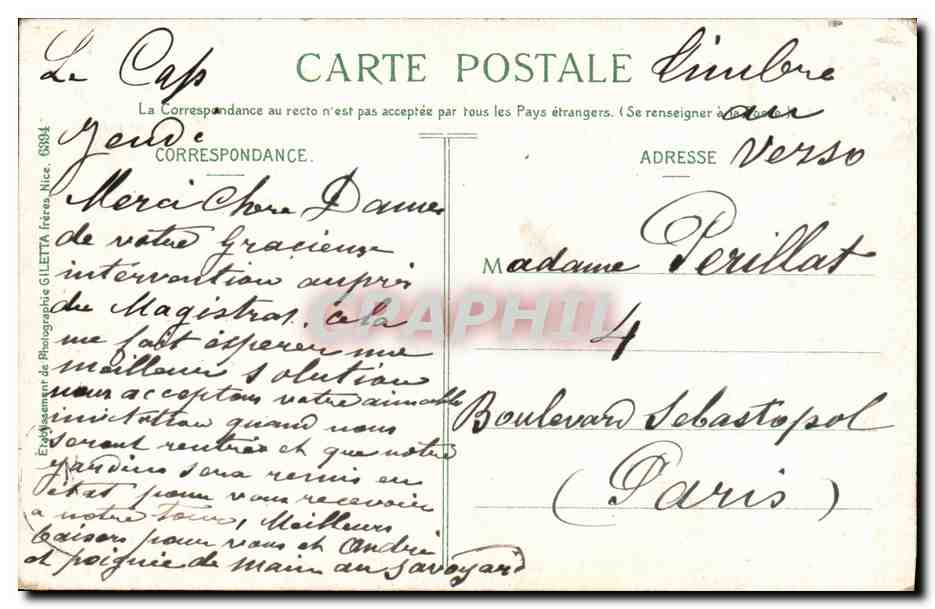 Le Cap
CARTE POSTALE
Timbre
au
verso
La Correspondance au recto n'est pas acceptée par tous les Pays étrangers. (Se renseigner à la Poste)
Jeudi
CORRESPONDANCE.
ADRESSE
Merci Chère Dame
de votre Gracieuse
intervention auprès
du Magistrat, cela
me fait espérer une
meilleur solution
nous acceptons votre aimable
invitation quand nous
seront rentrés et que notre
Jardins sera remis en
état pour vous recevoir
a notre tour, Meilleurs
baisers pour vous et André
et poignée de main au Savoyard
Madame Perillat
4
Boulevard Sebastopol
(Paris)
Etablissement de Photographie GILETTA frères, Nice. 6394
CPAPHIL